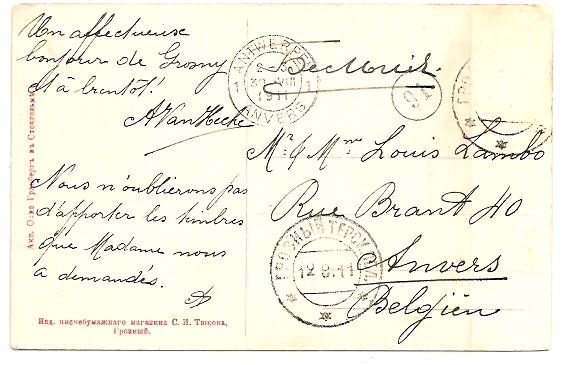 Un affectueux
bonjour de Grosny
et à bientôt!
A Van Hecke
Nous n'oublierons pas
d'apporter les timbres
que Madame nous
a demandés.
ANTWERPEN
1 1
30 VIII
1911
ANVERS
Mr & Mme Louis Lambo
Rue Brant 40
Anvers
Belgien
ГРОЗНЫЙ ТЕРСК.
12 8.11
ГРОЗ
Акц. О-во Гранбергъ въ Стокгольмѣ
Изд. писчебумажнаго магазина С. И. Тюкова,
Грозный.